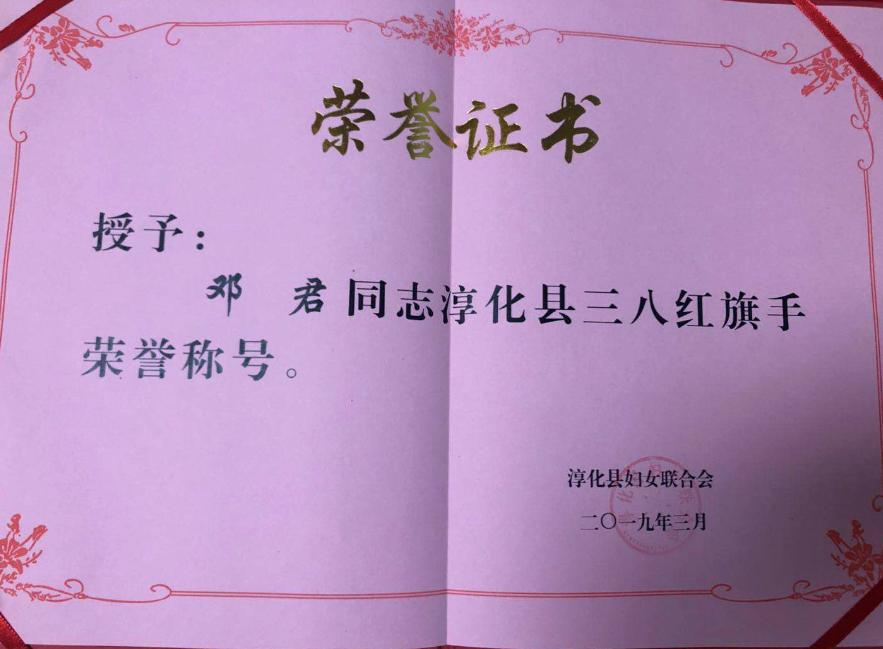 荣誉证书
授予：
邓 君同志淳化县三八红旗手
荣誉称号。
淳化县妇女联合会
二〇一九年三月